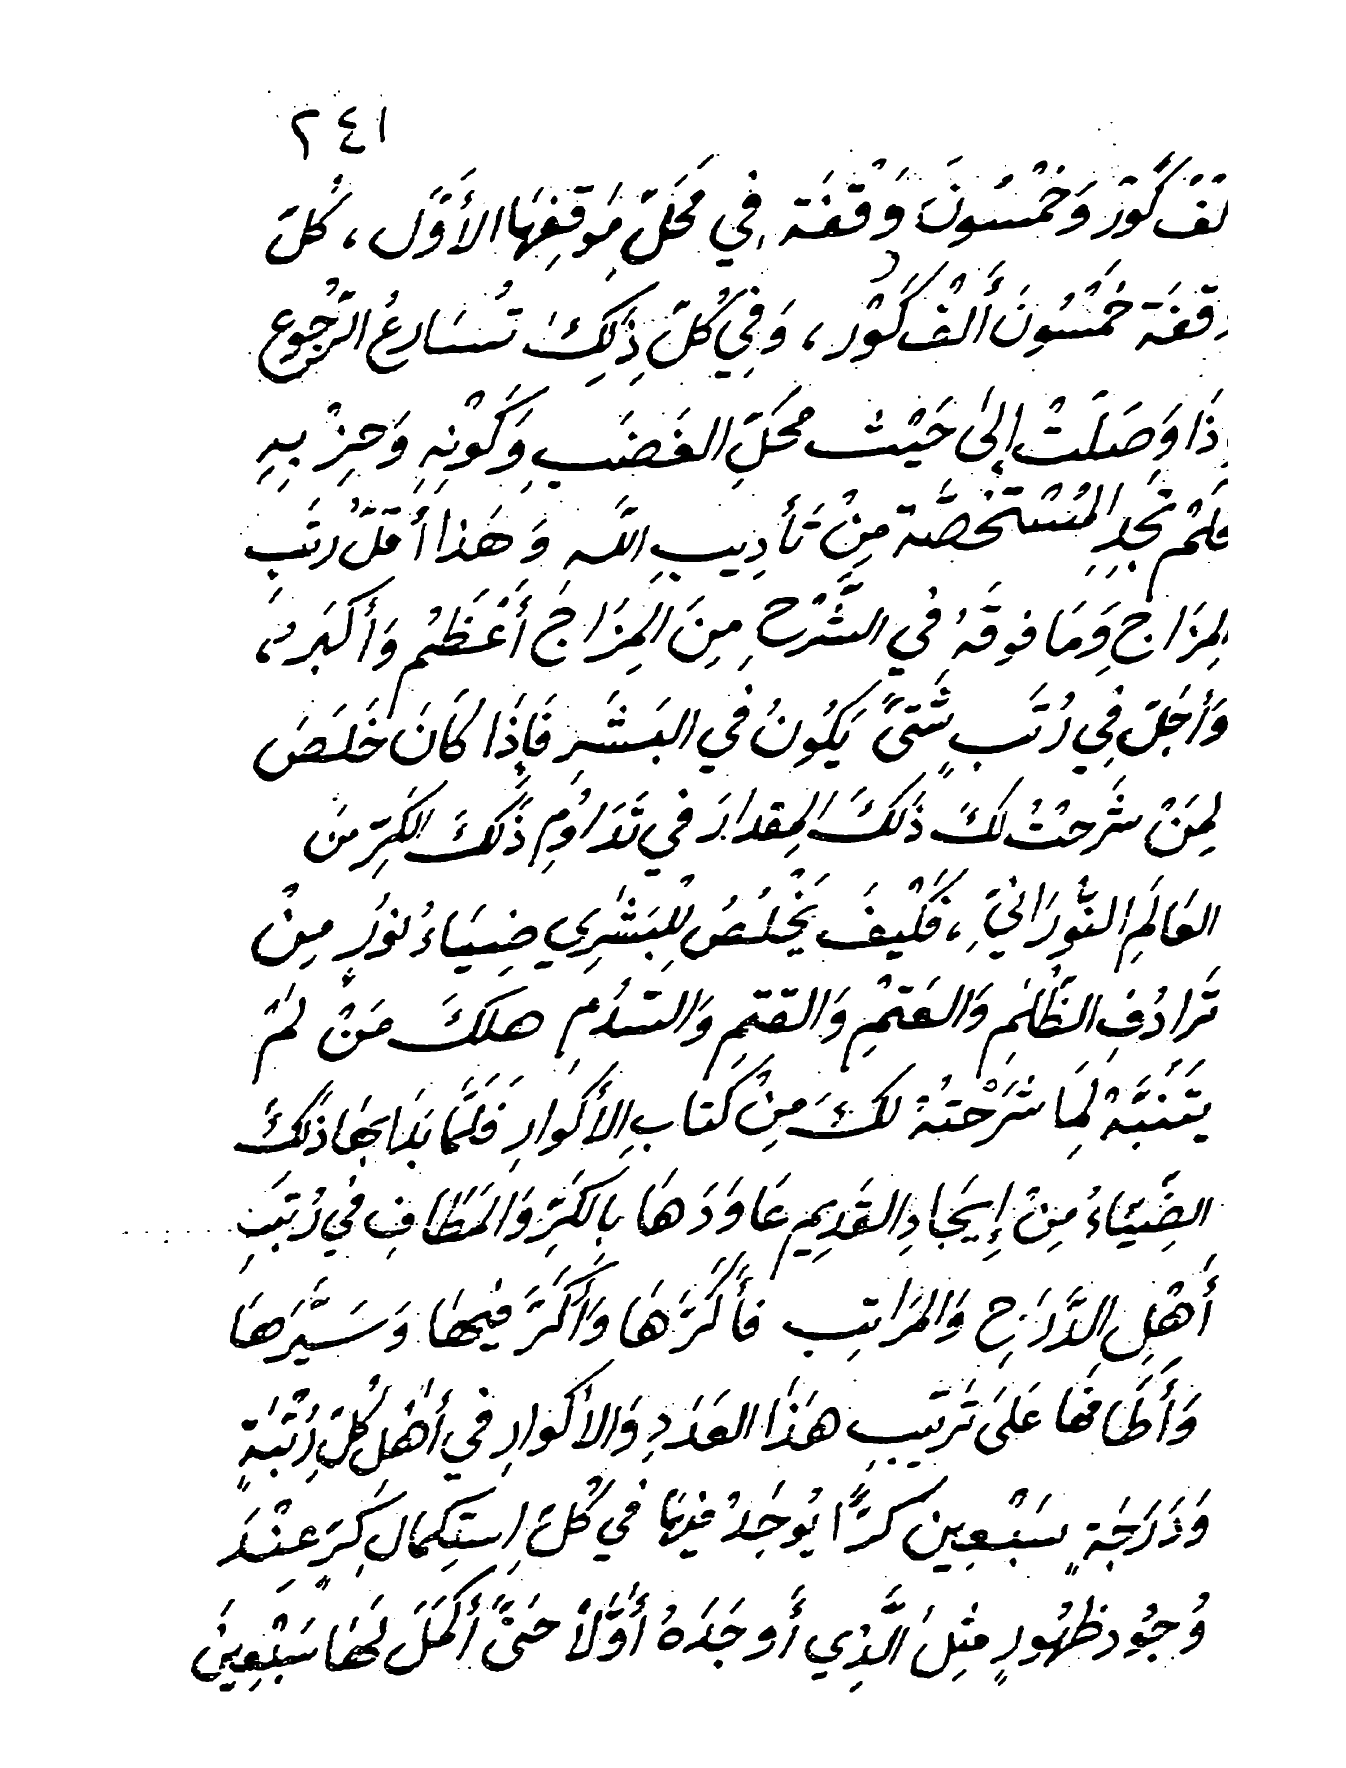 ٢٤١
لفَ كَوْرٍ وَخَمْسُونَ وَقْفَة فِي مَحَلِّ مَوقِفِهَا الأَوَّل ، كُلّ
وقفَة خَمْسُونَ أَلْفَ كَوْر ، وَفِي كُلّ ذَلِكَ تُسَارِعُ الرّجُوع
إذَا وَصَلَتْ إِلَى حَيْث محَلِّ الغَضَبِ وَكَوْنِهِ وَحِزْبِهِ
فلَمْ تَجِدِ المُسْتَخصَّة مِنْ تَأدِيبِ اللَّه وَهَذا أَقلّ رتَبِ
المِزَاج وَمَا فوقَهُ فِي الشَّرْحِ مِنَ المِزَاج أَعْظَم وَأَكبَر ،
وَأجَلّ فِي رُتَب شَتَّى يَكُونُ فِي البَشَر فَإِذَا كَانَ خَلَصَ
لِمَنْ شَرحْتُ لكَ ذَلكَ المِقدارَ في تَدَاوُمِ ذَلكَ الكَرِّ من
العَالَمِ النُّورَانيِّ ، فَكَيْفَ يَخْلُصُ لِلْبَشَرِي ضِيَاءُ نورٍ مِنْ
تَرَادُفِ الظُّلَمِ وَالعَتمِ وَالقتمِ وَالسّدُمِ هلكَ مَنْ لمْ
يتَنَبَّهْ لِمَا شَرَحْتهُ لكَ مِنْ كتابِ الأكوارِ فَلَمَّا بَدَا بهَا ذَلكَ
الضِّيَاءُ مِنْ إِيجَادِ القَدِيمِ عَاوَدَهَا بِالكَرِّ وَالمَطَافِ فِي رُتَبِ
أَهْلِ الدَّرَجِ وَالمَرَاتِب فأَكَرَّهَا وَأَكَرَّ فيهَا وَسَيَّرَهَا
وَأَطَافَهَا عَلَى تَرتيبِ هذَا العَدَدِ وَالأَكوارِ فِي أَهْلِ كُلِّ رُتْبَةٍ
وَدَرَجَةٍ سَبْعِين كَرًّا يُوجَدُ فيهَا فِي كُلّ اِستِكمالِ كَرٍّ عِنْدَ
وُجُود ظهُورٍ مثِلَ الَّذِي أَوجَدَهُ أَوَّلاً حَتَّى أَكمَلَ لَهَا سَبْعِين